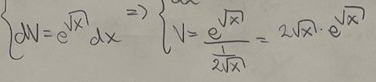 {dV = e^{√x} dx => {V = \frac{e^{√x}}{\frac{1}{2√x}} = 2√x · e^{√x}